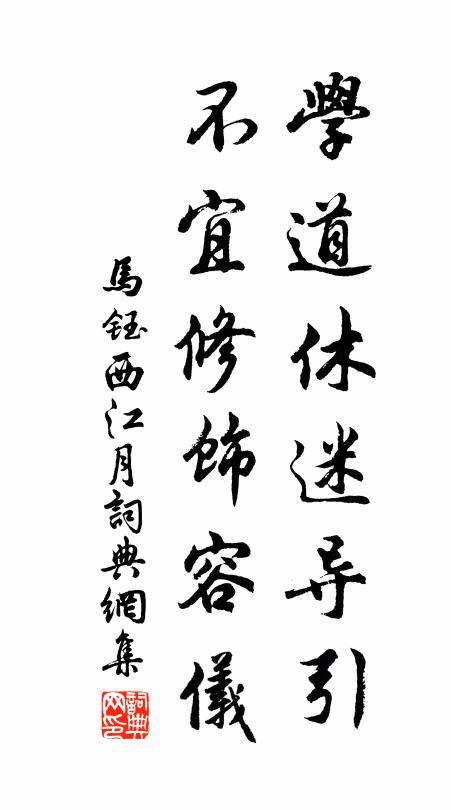 學道休迷导引
不宜修飾容儀
馬鈺西江月詞典網集
詞典网印